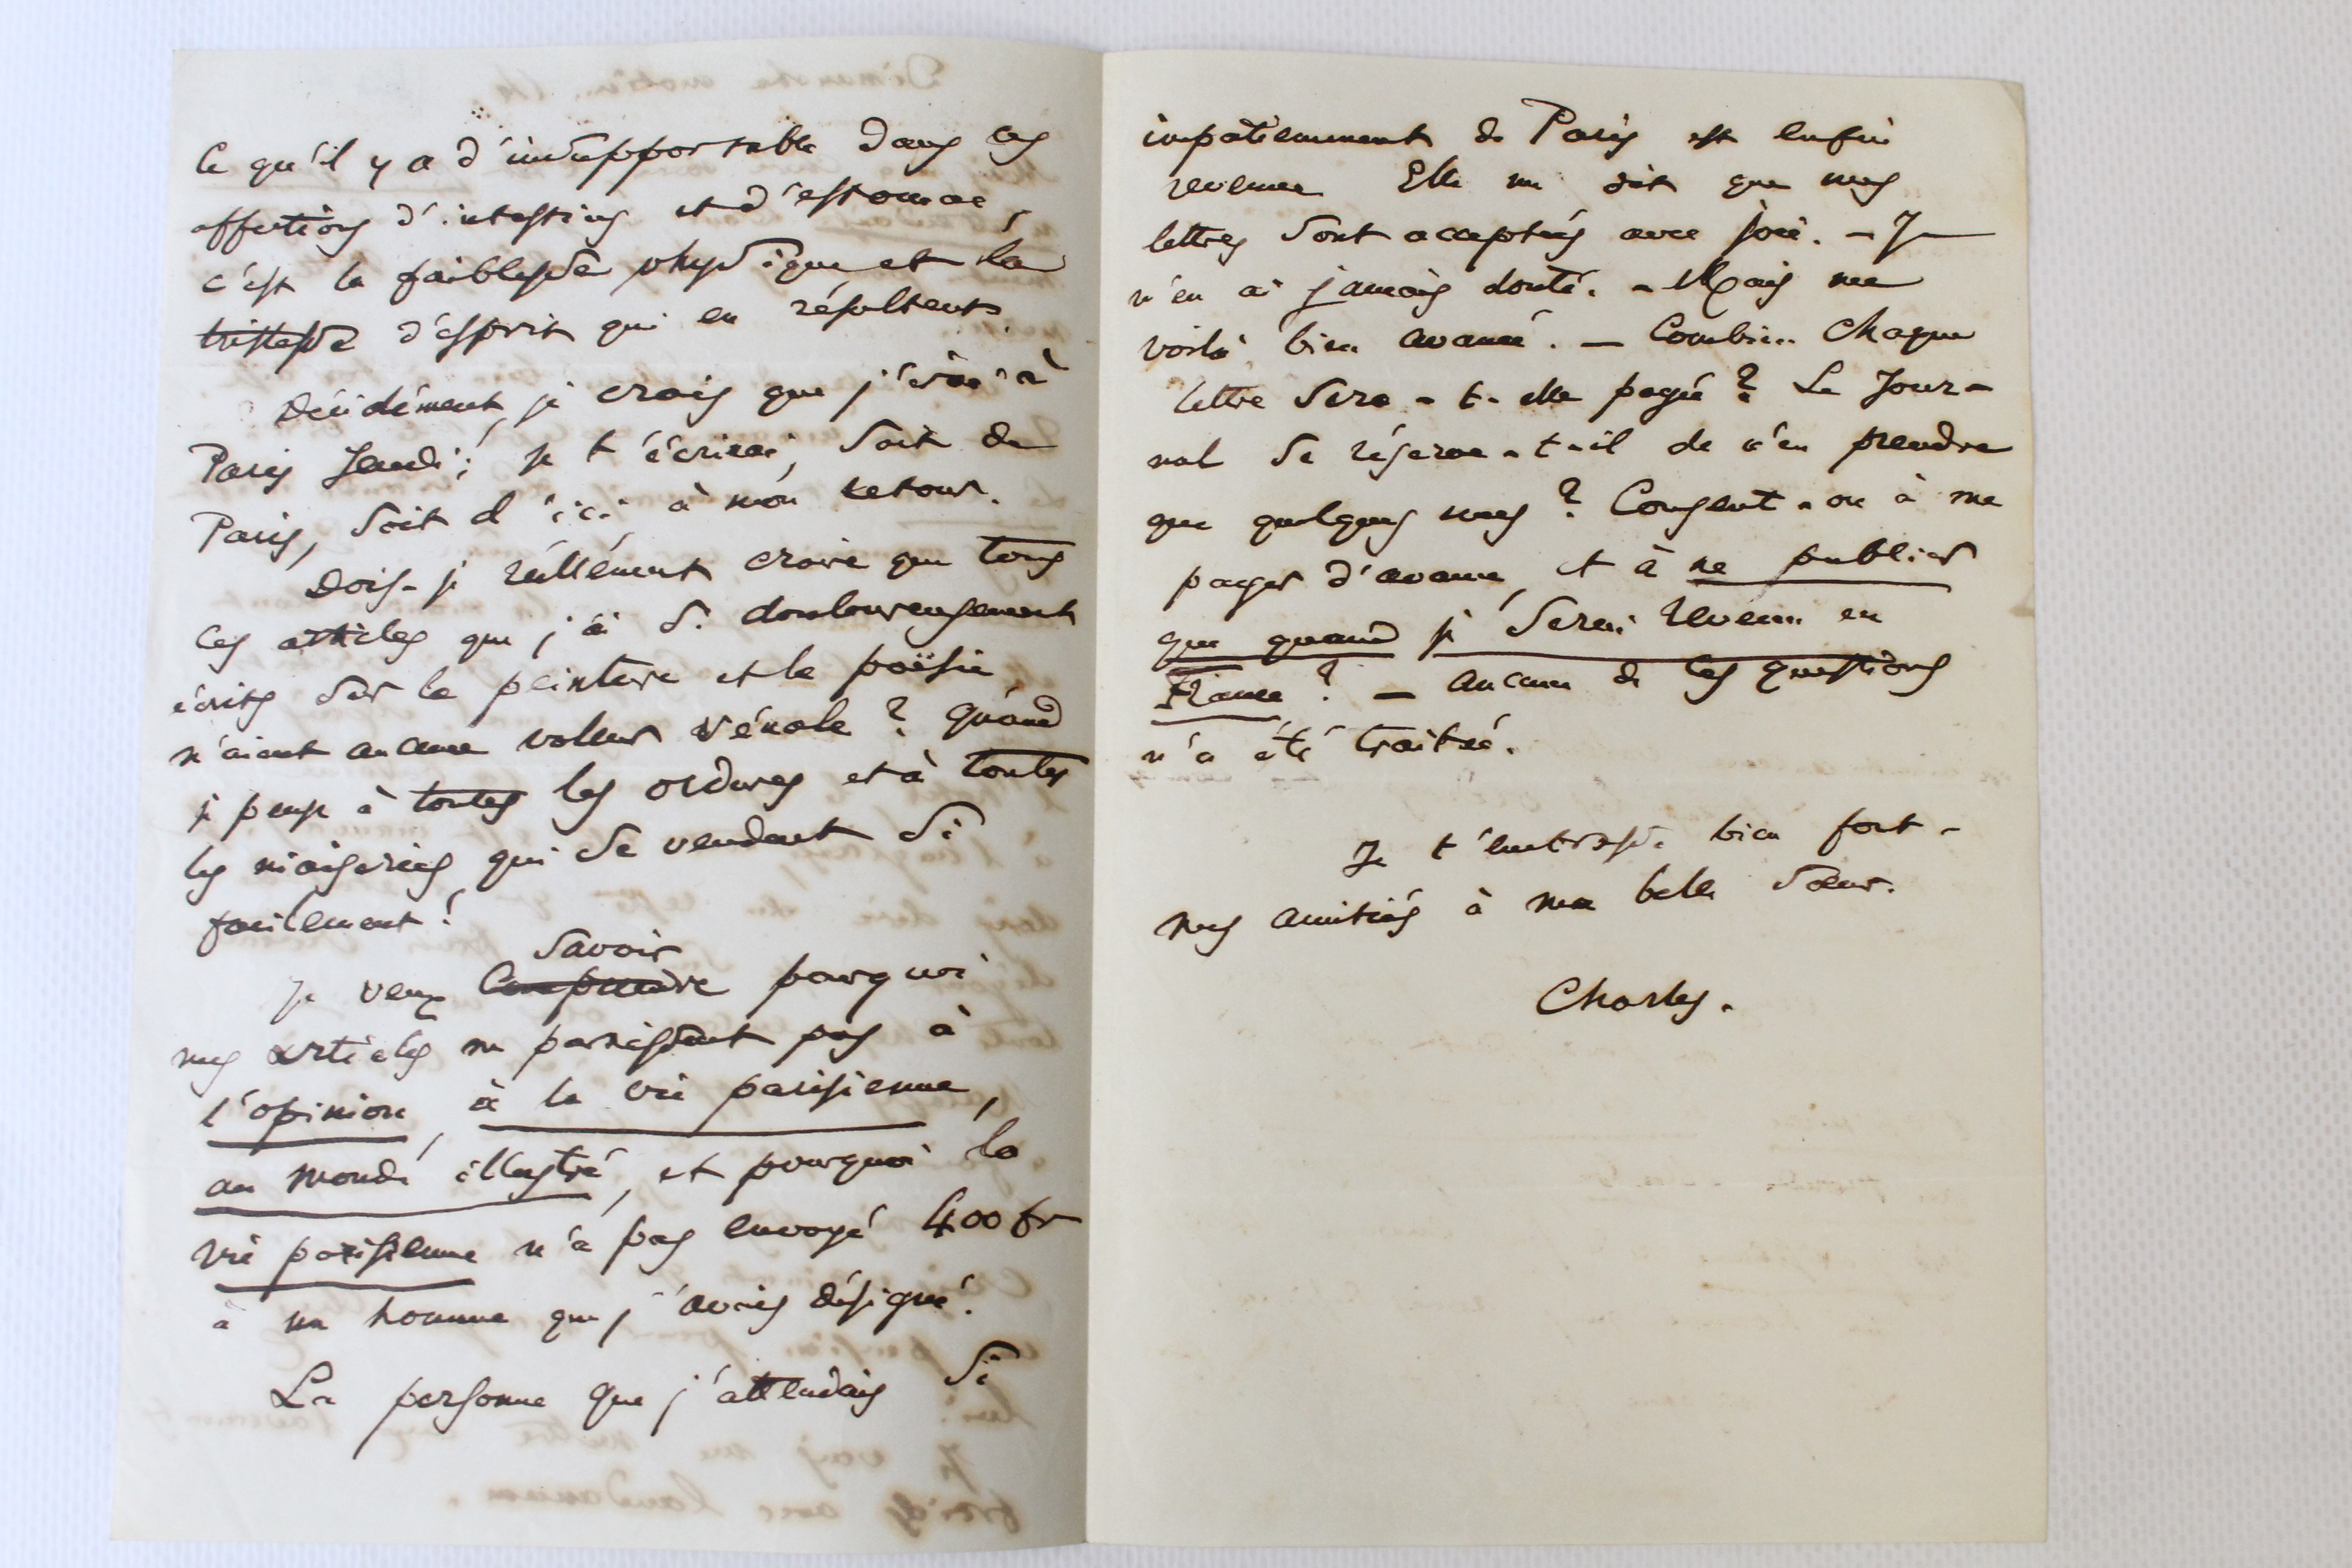 Ce qu'il y a d'insupportable dans ces
affections d'intestins et d'estomac,
c'est la faiblesse physique et la
tristesse d'esprit qui en résultent.
Décidément, je crois que j'irai à
Paris Jeudi; je t'écrirai, soit de
Paris, soit d'ici à mon retour.
Dois-je réellement croire que tous
ces articles que j'ai si douloureusement
écrits sur la peinture et la poësie
n'aient aucune valeur vénale? Quand
je pense à toutes les ordures et à toutes
les niaiseries qui se vendent si
facilement!
savoir
Je veux comprendre pourquoi
mes articles ne paraissent pas à
l'opinion, à la vie parisienne,
au monde illustré, et pourquoi la
vie parisienne n'a pas envoyé 400 fr
à un homme que j'avais désigné.
La personne que j'attendais si
impatiemment de Paris est enfin
revenue Elle me dit que mes
lettres sont acceptées avec joie. – Je
n'en ai jamais douté. – Mais me
voilà bien avancé. – Combien chaque
lettre sera-t-elle payée? Le Jour-
nal se réserve-t-il de n'en prendre
que quelques unes? Consent-on à me
payer d'avance, et à ne publier
que quand je serai revenu en
France? – Aucune de ces questions
n'a été traitée.
Je t'embrasse bien fort –
mes amitiés à ma belle sœur.
Charles.